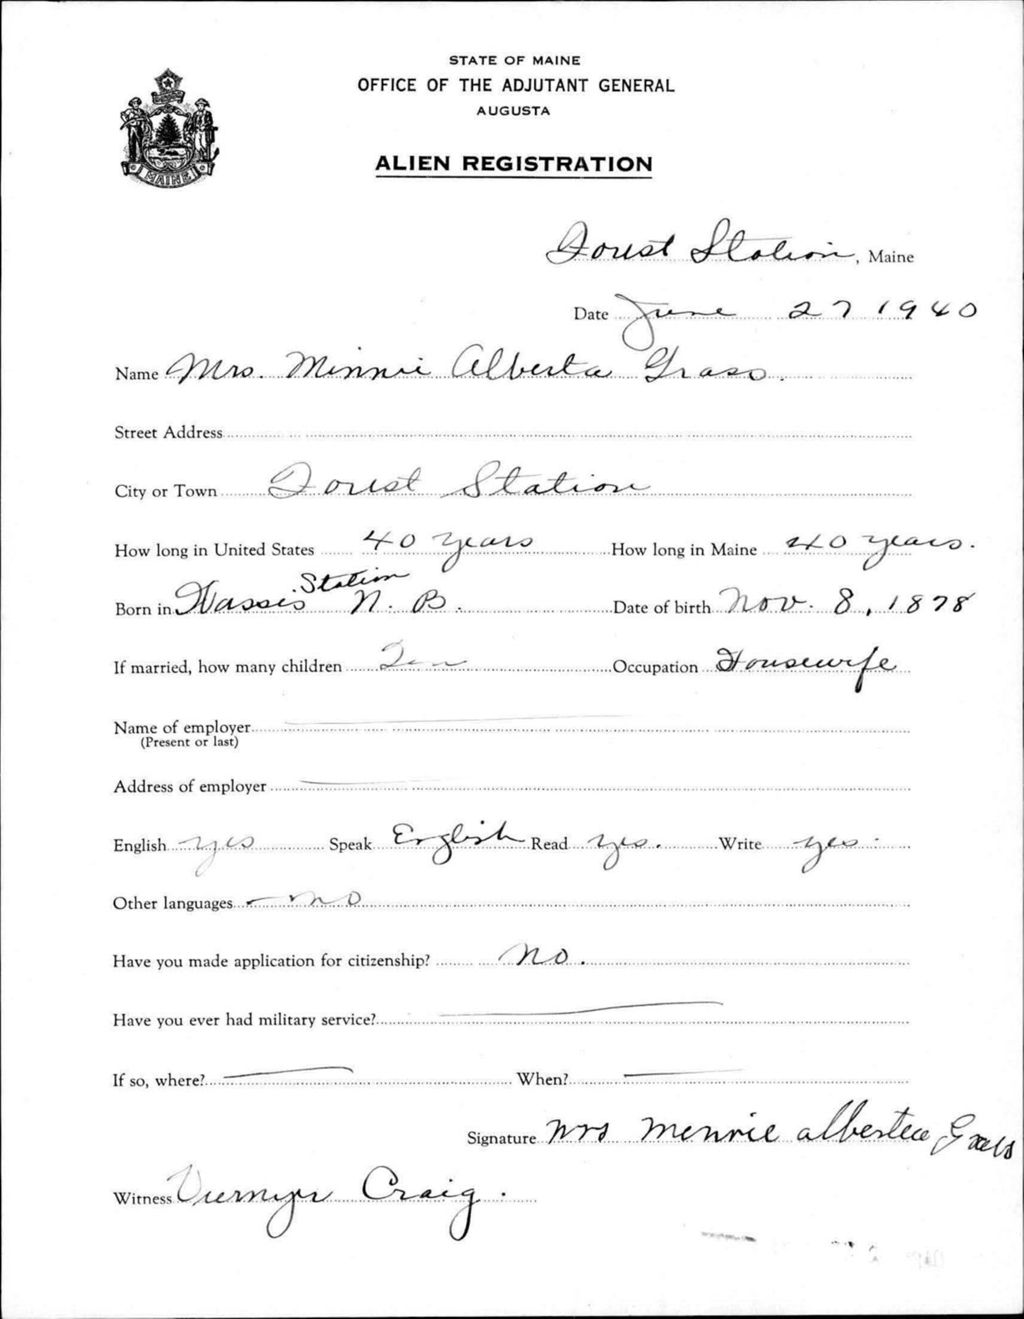 STATE OF MAINE
OFFICE OF THE ADJUTANT GENERAL
AUGUSTA
ALIEN REGISTRATION
MAINE
Forest Station, Maine
Date June 27 1940
Name Mrs. Minnie Alberta Grass.
Street Address
City or Town Forest Station
How long in United States 40 years How long in Maine 40 years.
Station
Born in N. B. Date of birth Nov. 8, 1878
If married, how many children Ten Occupation Housewife
Name of employer
(Present or last)
Address of employer
English yes Speak English Read yes. Write yes.
Other languages no
Have you made application for citizenship? No.
Have you ever had military service?
If so, where? When?
Signature Mrs Minnie alberta Grass
Witness Craig.